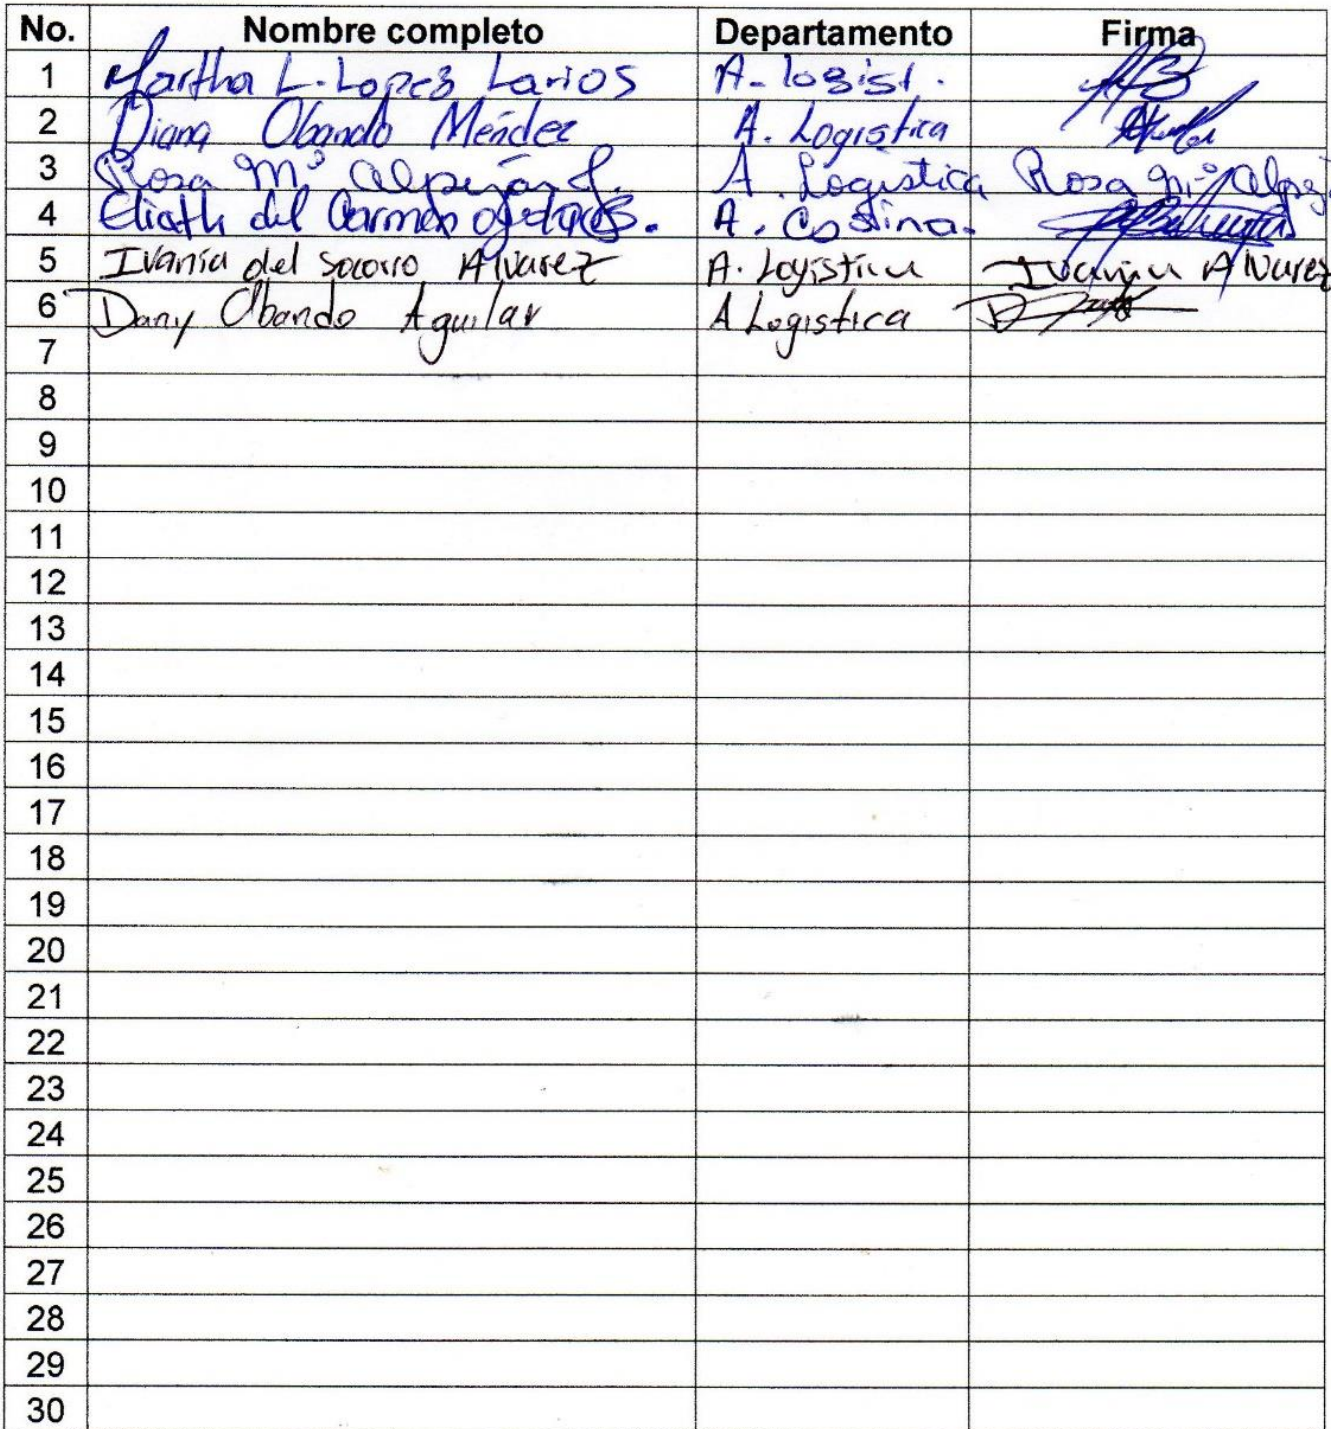 No. Nombre completo Departamento Firma
1 Martha L. Lopez Larios A-logist.
2 Diana Obando Méndez A. Logistica
3 Rosa Mª Alpizar A. Logistica Rosa
4 del Carmen A.
5 Ivania del Socorro Alvarez A. Logistica Ivania Alvarez
6 Dany Obando Aguilar A Logistica
7
8
9
10
11
12
13
14
15
16
17
18
19
20
21
22
23
24
25
26
27
28
29
30